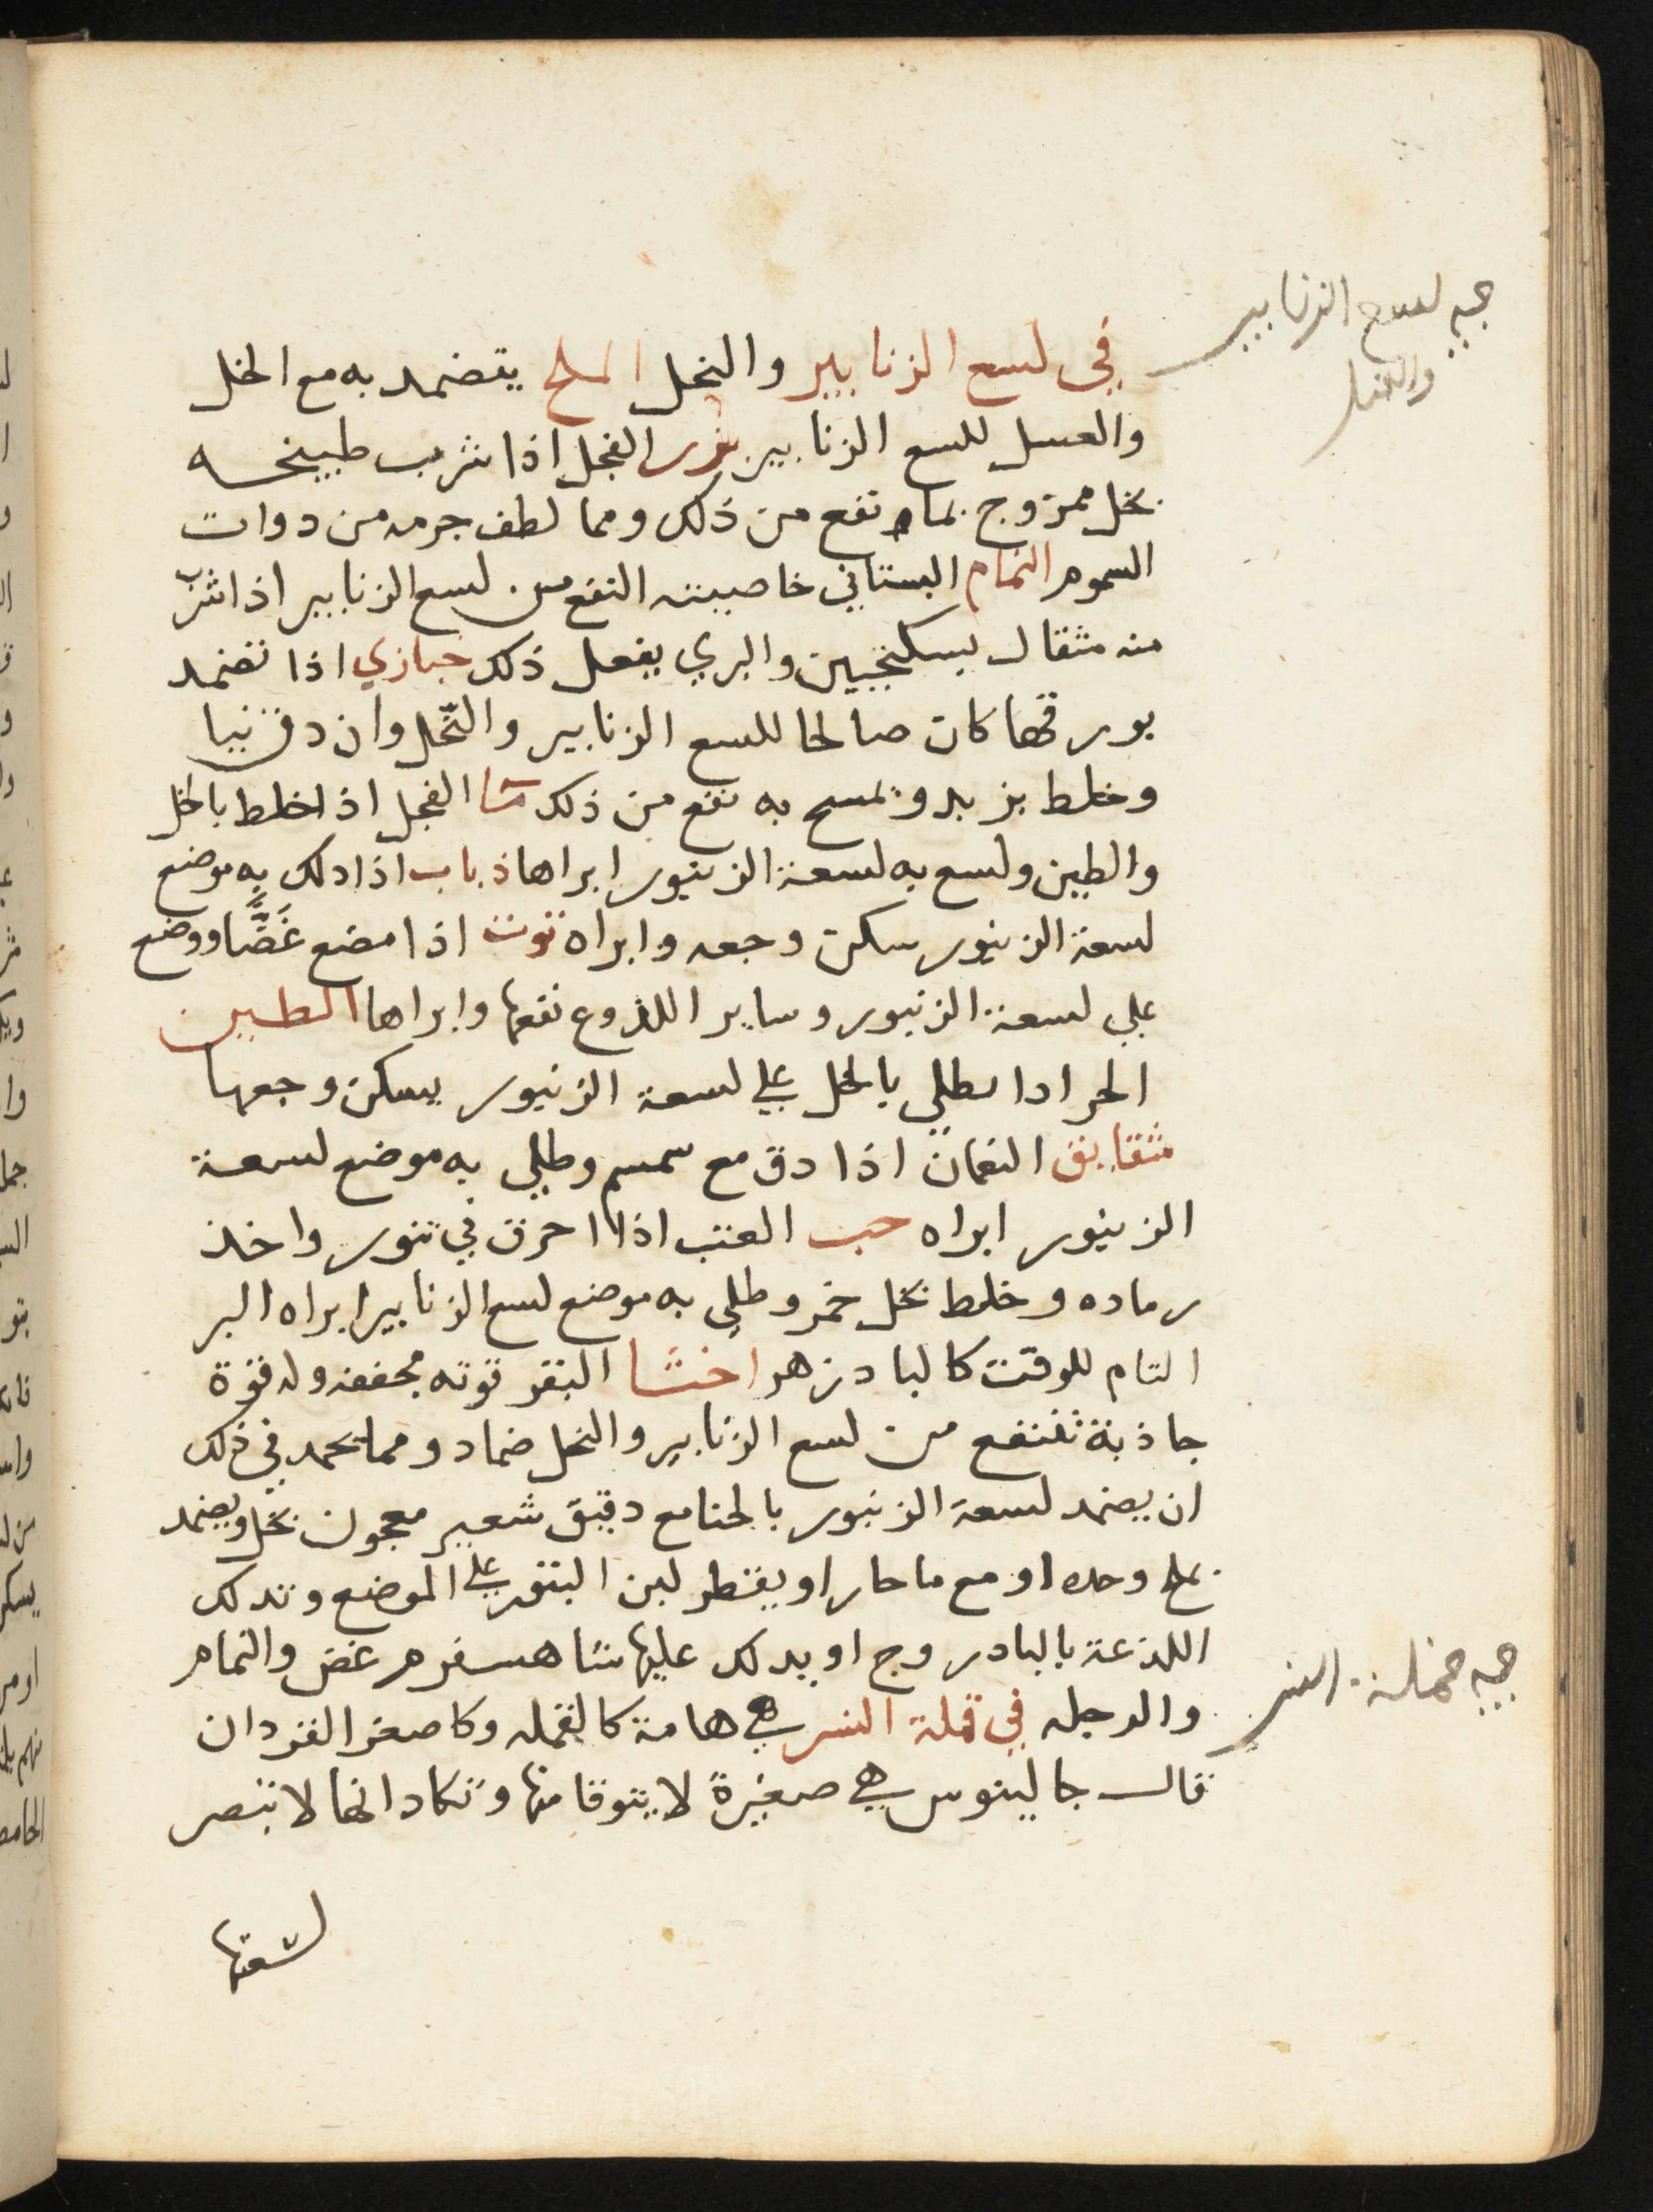 في لسع الزنابير والنحل الملح يتضمد به مع الخل
والعسل للسع الزنابير بزر الفجل اذا شرب طبيخه
بخل ممزوج بماء نفع من ذلك ومما لطف جرمه من دوات
السموم النمام البستاني خاصيته النفع من لسع الزنابير اذا شرب
منه مثقال بسكنجبين والبري يفعل ذلك خبازي اذا تضمد
بورقها كان صالحا للسع الزنابير والنحل وان دق نيا
وخلط بزيد وتمسح به نفع من ذلك ما الفجل اذا خلط بالخل
والطين ولسع به لسعة الزنبور ابراها ذباب اذا دلك به موضع
لسعة الزنبور سكن وجعه وابراه توت اذا مضع غضا ووضع
علي لسعة الزنبور وساير اللذوع نفعها وابراها الطين
الحر اذا يطلي بالخل علي لسعة الزنبور يسكن وجعها
شقايق النعمان اذا دق مع سمسم وطلي به موضع لسعة
الزنبور ابراه حب العنب اذا احرق في تنور واخذ
رماده وخلط بخل خمر وطلي به موضع لسع الزنابير ابراه البر
التام للوقت كالبادزهر اخثا البقر قوته مجففه وله قوة
جاذبة تنفع من لسع الزنابير والنحل ضماد ومما يحمد في ذلك
ان يضمد لسعة الزنبور بالحنا مع دقيق شعير معجون بخل ويضمد
بملح وحده او مع ما حار او يقطر لبن البقر علي الموضع وتدلك
اللذعة بالبادروج او يدلك عليها شاهسفرم غض والنمام
والرجله في قملة النسر هي هامة كالقمله وكاصغر القردان
قال جالينوس هي صغيرة لا يتوقا منها وتكاد انها لا تبصر
لسعتها
لسع الزنابير
والنحل
قملة النسر